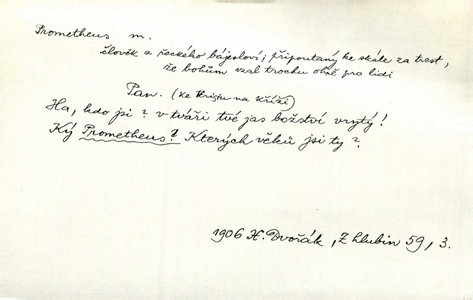 Prometheus m.
člověk z řeckého bájesloví; připoutaný ke skále za trest,
že bohům vzal trochu ohně pro lidi
Pan. (ke Kristu na kříži)
Ha, kdo jsi? v tváři tvé jas božství vrytý!
Ký Prometheus? Kterých věků jsi ty?
1906 X. Dvořák, Z hlubin 59, 3.